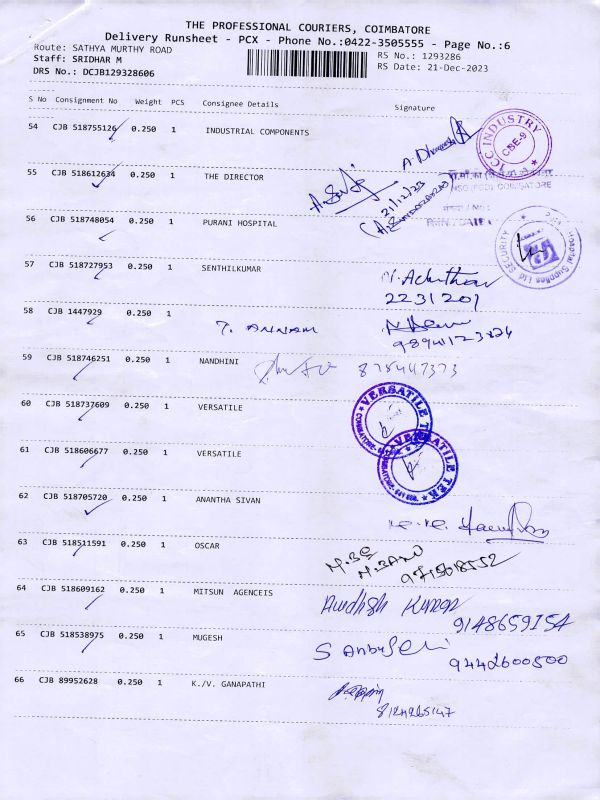 THE PROFESSIONAL COURIERS, COIMBATORE
Delivery Runsheet - PCX - Phone No.:0422-3505555 - Page No.:6
Route: SATHYA MURTHY ROAD
RS No.: 1293286
Staff: SRIDHAR M
RS Date: 21-Dec-2023
DRS No.: DCJB129328606
S No Consignment No Weight PCS Consignee Details Signature
54 CJB 518755126 0.250 1 INDUSTRIAL COMPONENTS
INDUSTRY
CBE-9
55 CJB 518612634 0.250 1 THE DIRECTOR
21/12/23
COIMBATORE
56 CJB 518748054 0.250 1 PURANI HOSPITAL
SECURITY
Hospital Supplies
57 CJB 518727953 0.250 1 SENTHILKUMAR
2231201
58 CJB 1447929 0.250 1
T. ANNAM
59 CJB 518746251 0.250 1 NANDHINI
60 CJB 518737609 0.250 1 VERSATILE
VERSATILE TEK
61 CJB 518606677 0.250 1 VERSATILE
VERSATILE TEK
62 CJB 518705720 0.250 1 ANANTHA SIVAN
63 CJB 518511591 0.250 1 OSCAR
64 CJB 518609162 0.250 1 MITSUN AGENCEIS
9148659154
65 CJB 518538975 0.250 1 MUGESH
9442600500
66 CJB 89952628 0.250 1 K./V. GANAPATHI